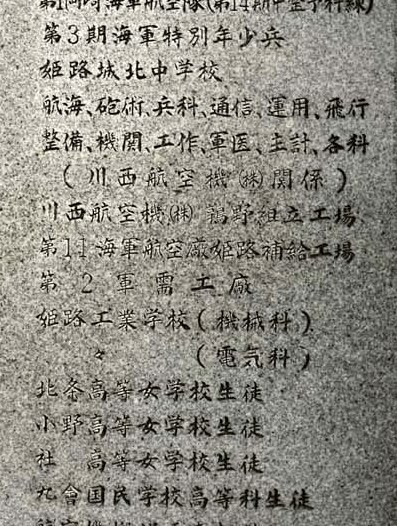 海軍航空隊(第14期甲空予科練)
第3期海軍特別年少兵
姫路城北中学校
航海、砲術、兵科、通信、運用、飛行
整備、機関、工作、軍医、主計、各科
(川西航空機㈱関係)
川西航空機㈱鶉野組立工場
第11海軍航空廠姫路補給工場
第2軍需工廠
姫路工業学校(機械科)
々(電気科)
北条高等女学校生徒
小野高等女学校生徒
社高等女学校生徒
九會国民学校高等科生徒